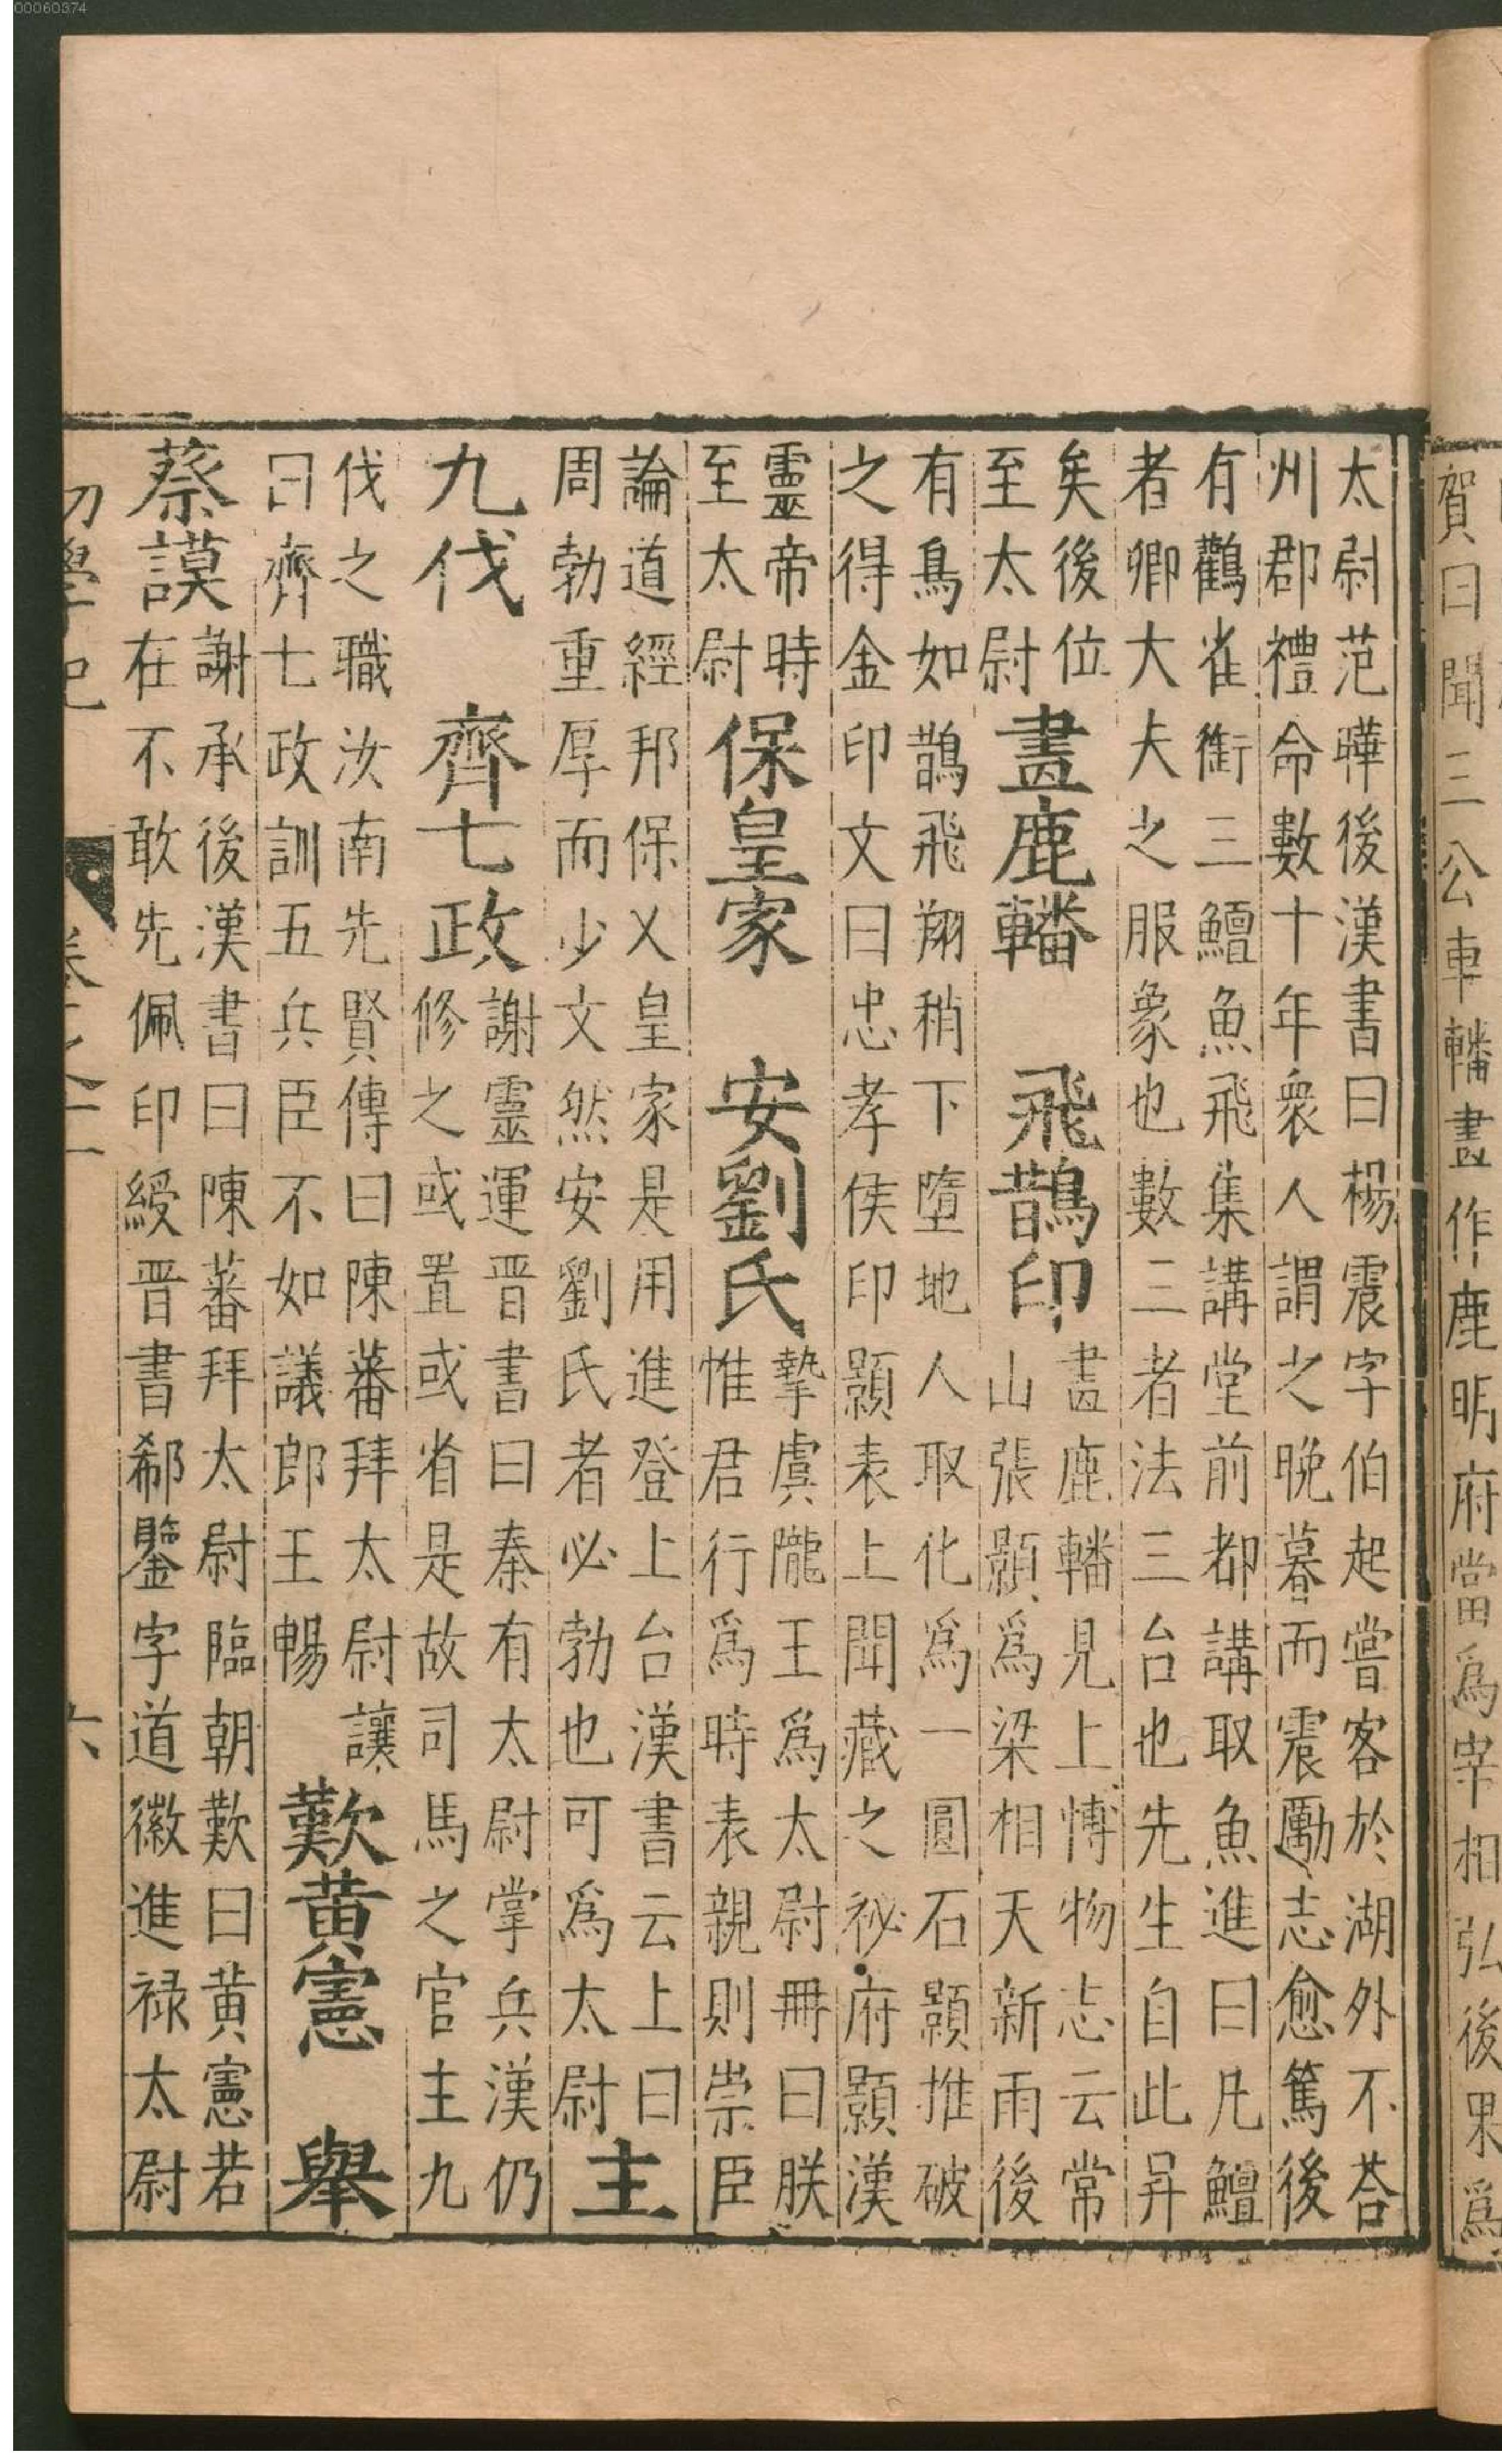 00060374
賀曰聞三公車轓畫作鹿明府當爲宰相弘後果爲
太尉范曄後漢書曰楊震字伯起嘗客於湖外不荅
州郡禮命數十年衆人謂之晚暮而震勵志愈篤後
有鸛雀銜三鱣魚飛集講堂前都講取魚進曰凡鱣
者卿大夫之服象也數三者法三台也先生自此昇
矣後位
至太尉
畫鹿轓 飛鵲印
畫鹿轓見上博物志云常
山張顥爲梁相天新雨後
有鳥如鵲飛翔稍下墮地人取化爲一圓石顥推破
之得金印文曰忠孝侯印顥表上聞藏之祕府顥漢
靈帝時
至太尉
保皇家 安劉氏
摯虞隴王爲太尉冊曰朕
惟君行爲時表親則崇臣
論道經邦保乂皇家是用進登上台漢書云上曰
周勃重厚而少文然安劉氏者必勃也可爲太尉
主
九伐 齊七政
謝靈運晋書曰秦有太尉掌兵漢仍
修之或置或省是故司馬之官主九
伐之職汝南先賢傳曰陳蕃拜太尉讓
曰齊七政訓五兵臣不如議郎王暢
歎黄憲 舉
蔡謨
謝承後漢書曰陳蕃拜太尉臨朝歎曰黄憲若
在不敢先佩印綬晋書郗鑒字道徽進禄太尉
初學記 卷 十一 六